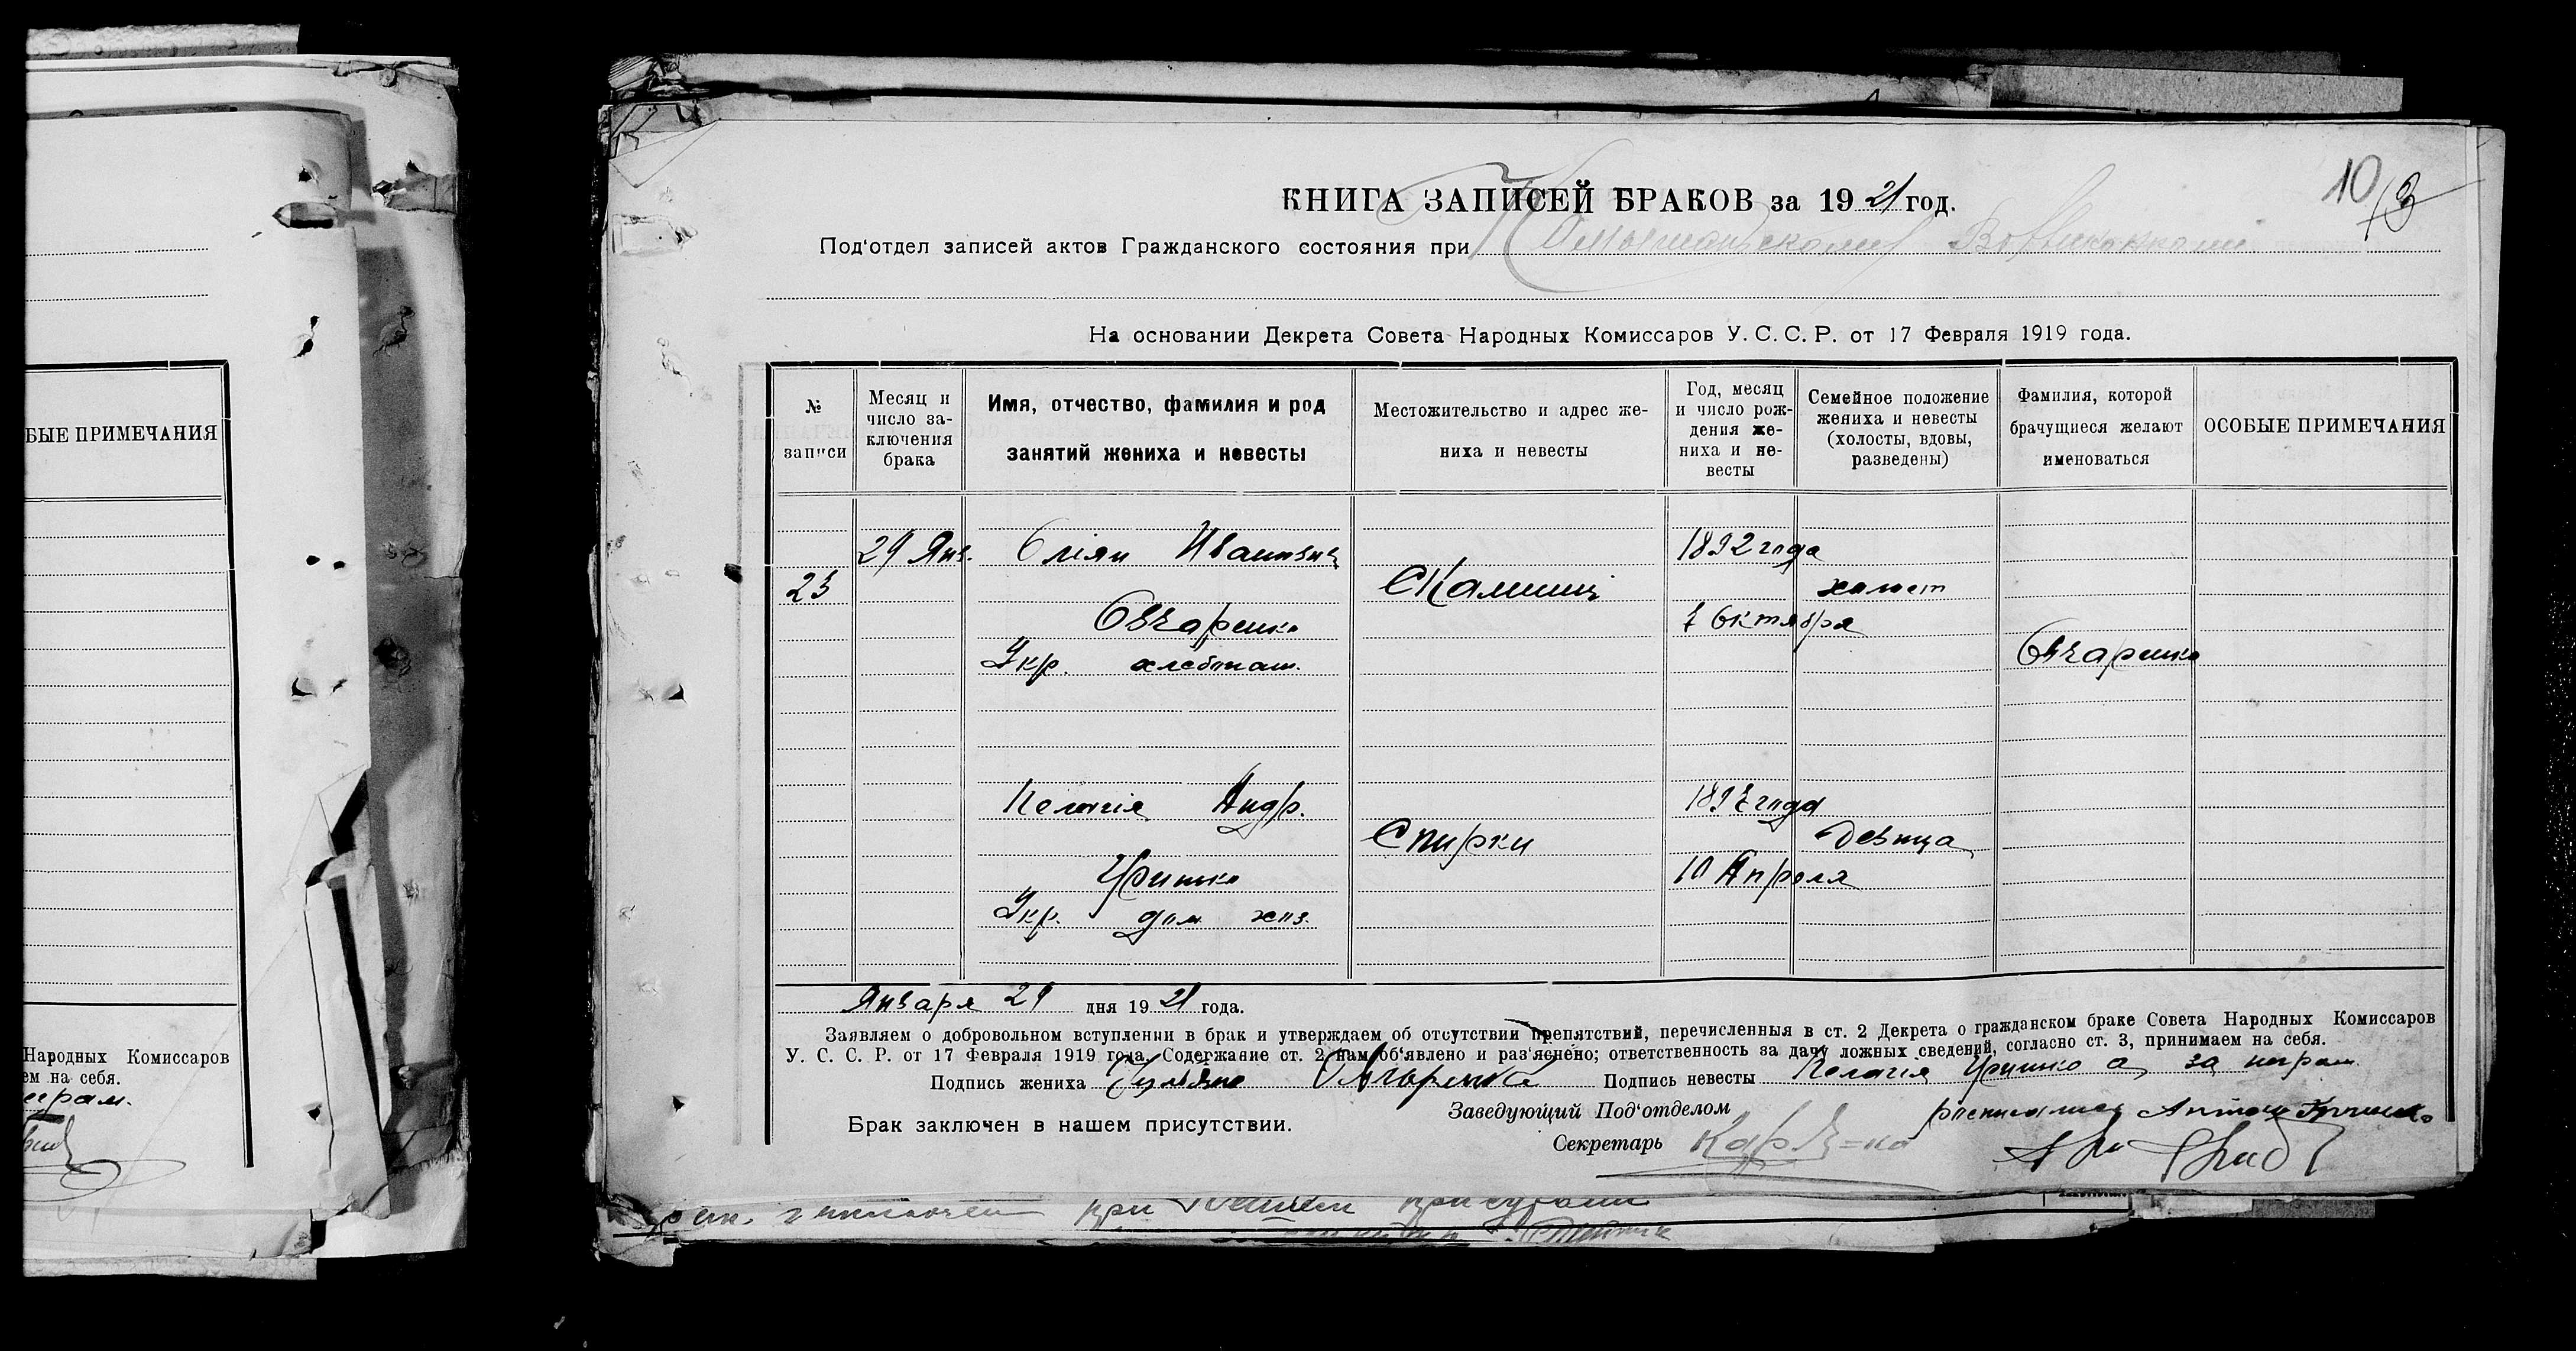 БЫЕ ПРИМЕЧАНИЯ
Народных Комиссаров
ем на себя.
КНИГА ЗАПИСЕЙ БРАКОВ за 1921 год.
10
Под'отдел записей актов Гражданского состояния при
На основании Декрета Совета Народных Комиссаров У. С. С. Р. от 17 Февраля 1919 года.
№ записи
Месяц и число за-
ключения
брака
Имя, отчество, фамилия и род
занятий жениха и невесты
Местожительство и адрес же-
ниха и невесты
Год, месяц
и число рож-
дения же-
ниха и не-
весты
Семейное положение
жениха и невесты
(холосты, вдовы,
разведены)
Фамилия, которой
брачущиеся желают
именоваться
ОСОБЫЕ ПРИМЕЧАНИЯ
29 Янв. Иванович 1892 года
23 холост
Овчаренко 7 Октября
Укр. хлебопаш. Овчаренко
Пелагія Андр. 1897 года
Спирки девица
Гришко 10 Апреля
Укр. дом. хоз.
Января 29 дня 1921 года.
Заявляем о добровольном вступлении в брак и утверждаем об отсутствии препятствий, перечисленныя в ст. 2 Декрета о гражданском браке Совета Народных Комиссаров
У. С. С. Р. от 17 Февраля 1919 года. Содержание ст. 2 нам об'явлено и раз'яснено; ответственность за дачу ложных сведений, согласно ст. 3, принимаем на себя.
Подпись жениха Овчаренко Подпись невесты Пелагія Гришко а за неграм.
Заведующий Под'отделом
росписался Антон Гришко
Брак заключен в нашем присутствии.
Секретарь